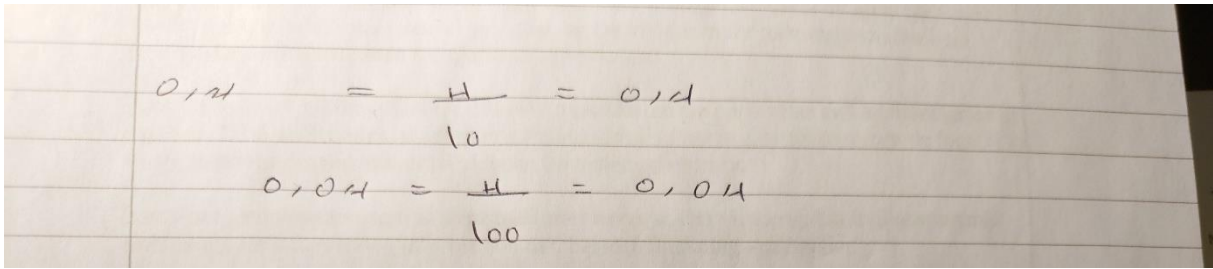 0,4 = 4/10 = 0,4
0,04 = 4/100 = 0,04